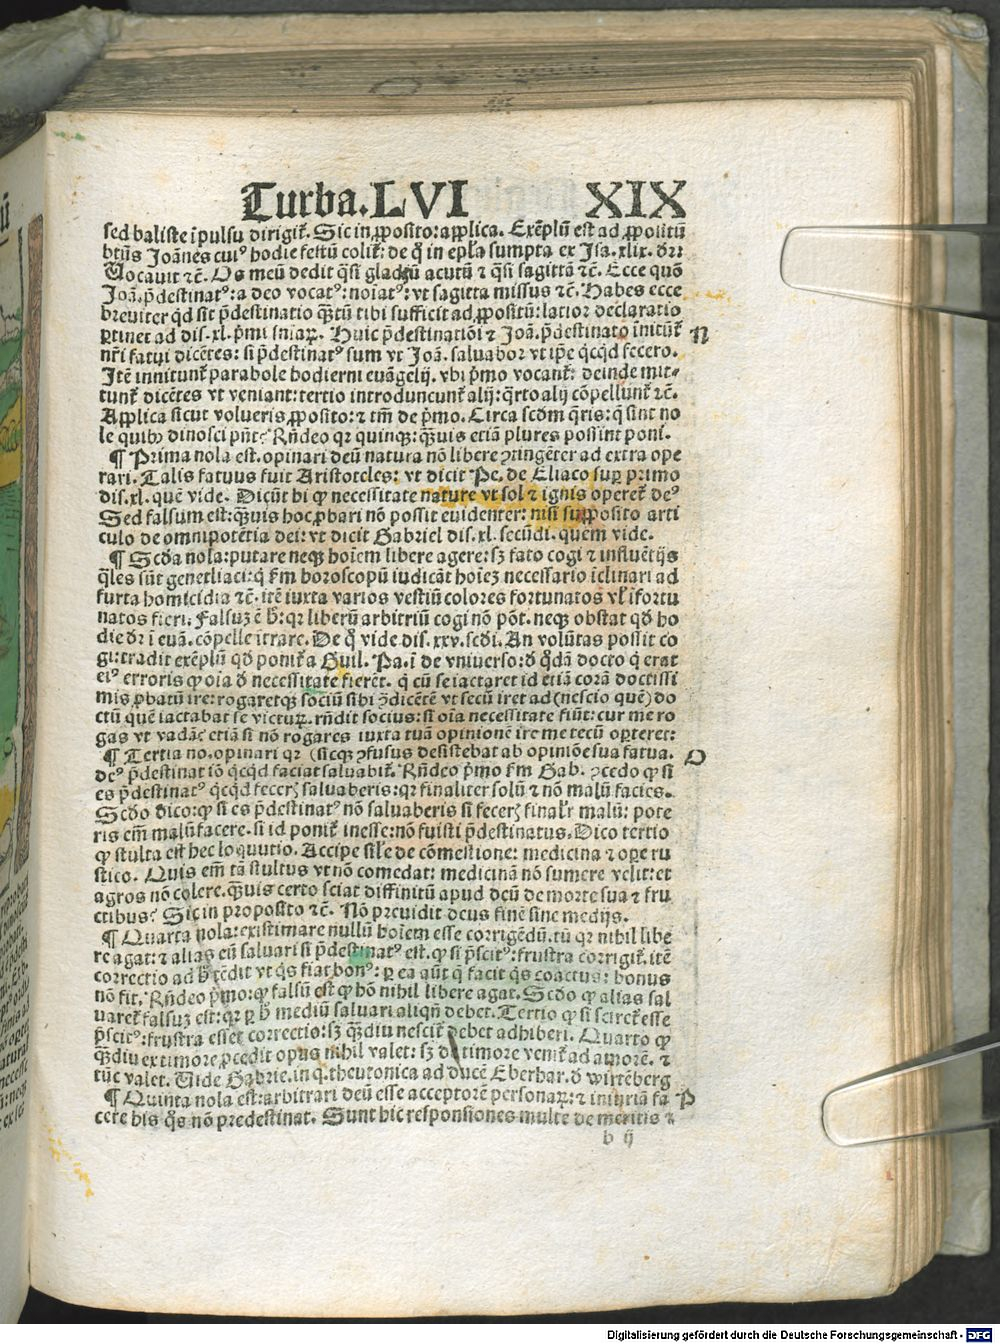 Turba. LVI XIX
sed baliste īpulsu dirigiṫ. Sic in ꝓposito: applica. Exēplū est ad ꝓpositū
btūs Joānes cuiꝰ hodie festū coliṫ: de q̊ in epl̄a sumpta ex Jsa. xlix. dr̄:
Vocavit ⁊c̄. Os meū dedit q̄si gladiū acutū ⁊ q̄si sagittā ⁊c̄. Ecce quō
Joā. p̄destinatꝰ: a deo vocatꝰ: noīatꝰ: vt sagitta missus ⁊c̄. Habes ecce
breviter qd̄ sit p̄destinatio q̄ꝫtū tibi sufficit ad ꝓpositū: latior declaratio
ꝑtinet ad dis. xl. pͥmi sniaꝝ. Huic p̄destinatiōi ⁊ Joā. p̄destinato inituṫ N
nr̄i fatui dicētes: si p̄destinatꝰ sum vt Joā. salvabor vt ip̄e qͥcqͥd fecero.
Jtē innituṫ parabole hodierni euāgelij. vbi pͥmo vocanṫ: deinde mit⸗
tunṫ dicētes vt veniant: tertio introduncunṫ alij: q̄rto alij cōpellunṫ ⁊c̄.
Applica sicut volueris ꝓposito: ⁊ tm̄ de pͥmo. Circa scd̄m q̄ris: q̄ sint no
le quibꝫ dinosci pn̄t? Rn̄deo qꝛ quinqꝫ: q̄ꝫuis etiā plures possint poni.
¶ Prima nola est. opinari deū natura nō libere ꝯtingēter ad extra ope
rari. Talis fatuus fuit Aristoteles: vt dicit Pe. de Eliaco suꝑ primo
dis. xl. quē vide. Dicūt hi ꝙ necessitate nature vt sol ⁊ ignis opereṫ deꝰ
Sed falsum est: q̄ꝫuis hoc ꝓbari nō possit euidenter: nisi supposito arti
culo de omnipotētia dei: vt dicit Gabriel dis. xl. secūdi. quem vide.
¶ Scd̄a nola: putare neqꝫ hoīem libere agere: sꝫ fato cogi ⁊ influētijs
q̄les sūt genetliaci: q̄ ẜm horoscopū iudicāt hoīeꝫ necessario īclinari ad
furta homicidia ⁊c̄. itē iuxta varios vestiū colores fortunatos vl̓ īfortu
natos fieri. Falsuꝫ ē ħ: qꝛ liberū arbitriū cogi nō pōt. neqꝫ obstat qd̄ ho
die dr̄ ī euā. cōpelle ītrare. De q̊ vide dis. xxv. scd̓i. An volūtas possit co
gi: tradit exēplū qd̄ poniṫ a Guil. Pa. ī de vniverso: ð q̊dā docto q̄ erat
eiꝰ erroris ꝙ oīa ð necessitate fierēt. q̄ cū se iactaret id etiā corā doctissi
mis ꝓbatū ire: rogaretqꝫ sociū sibi ꝯdicētē vt secū iret ad (nescio quē) do
ctū quē iactabat se victuꝝ. rn̄dit socius: si oīa necessitate fiūt: cur me ro
gas vt vadā? etiā si nō rogares iuxta tuā opinionē ire me tecū oꝑteret:
¶ Tertia no. opinari qꝛ (sicqꝫ ꝯfusus desistebat ab opiniōe sua fatua. O
deꝰ p̄destinat iō qͥcqͥd faciat salvabiṫ. Rn̄deo pͥmo ẜm Gab. ꝯcedo ꝙ si
es p̄destinatꝰ qͥcqͥd fecerꝭ salvaberis: qꝛ finaliter solū ⁊ nō malū facies.
Scd̄o dico: ꝙ si es p̄destinatꝰ nō salvaberis si fecerꝭ final̓r malū: pote
ris em̄ malū facere. si id poniṫ inesse: nō fuisti p̄destinatus. Dico tertio
ꝙ stulta est hec loquutio. Accipe sil̓e de cōmestione: medicina ⁊ oꝑe ru
stico. Quis em̄ tā stultus vt nō comedat: medicinā nō sumere velit: et
agros nō colere. q̄ꝫuis certo sciat diffinitū apud deū de morte sua ⁊ fru
ctibus? Sic in proposito ⁊c̄. Nō previdit deus finē sine medijs.
¶ Quarta nola: existimare nullū hoīem esse corrigēdū. tū qꝛ nihil libe
re agat: ⁊ alias eū salvari si p̄destinatꝰ est. ꝙ si p̄scitꝰ: frustra corrigiṫ. itē
correctio ad ħ tēdit vt q̄s fiat bonꝰ: ꝑ ea aūt q̄ facit q̄s coactus: bonus
nō fit. Rn̄deo pͥmo: ꝙ falsū est ꝙ hō nihil libere agat. Scd̄o ꝙ alias sal
vareṫ falsuꝫ est: qꝛ ꝑ ħ mediū salvari aliqn̄ debet. Tertio ꝙ si scireṫ esse
p̄scitꝰ: frustra esset correctio: sꝫ q̄ꝫdiu nesciṫ debet adhiberi. Quarto ꝙ
q̄ꝫdiu ex timore ꝓcedit opus nihil valet: sꝫ de timore veniṫ ad amorē. ⁊
tūc valet. Vide Gabrie. in q. theutonica ad ducē Eberhar. ð wirtēberg
¶ Quinta nola est: arbitrari deū esse acceptorē personaꝝ: ⁊ iniuriā fa P
cere his q̊s nō predestinat. Sunt hic responsiones multe de meritis ⁊
b ij
Digitalisierung gefördert durch die Deutsche Forschungsgemeinschaft - DFG